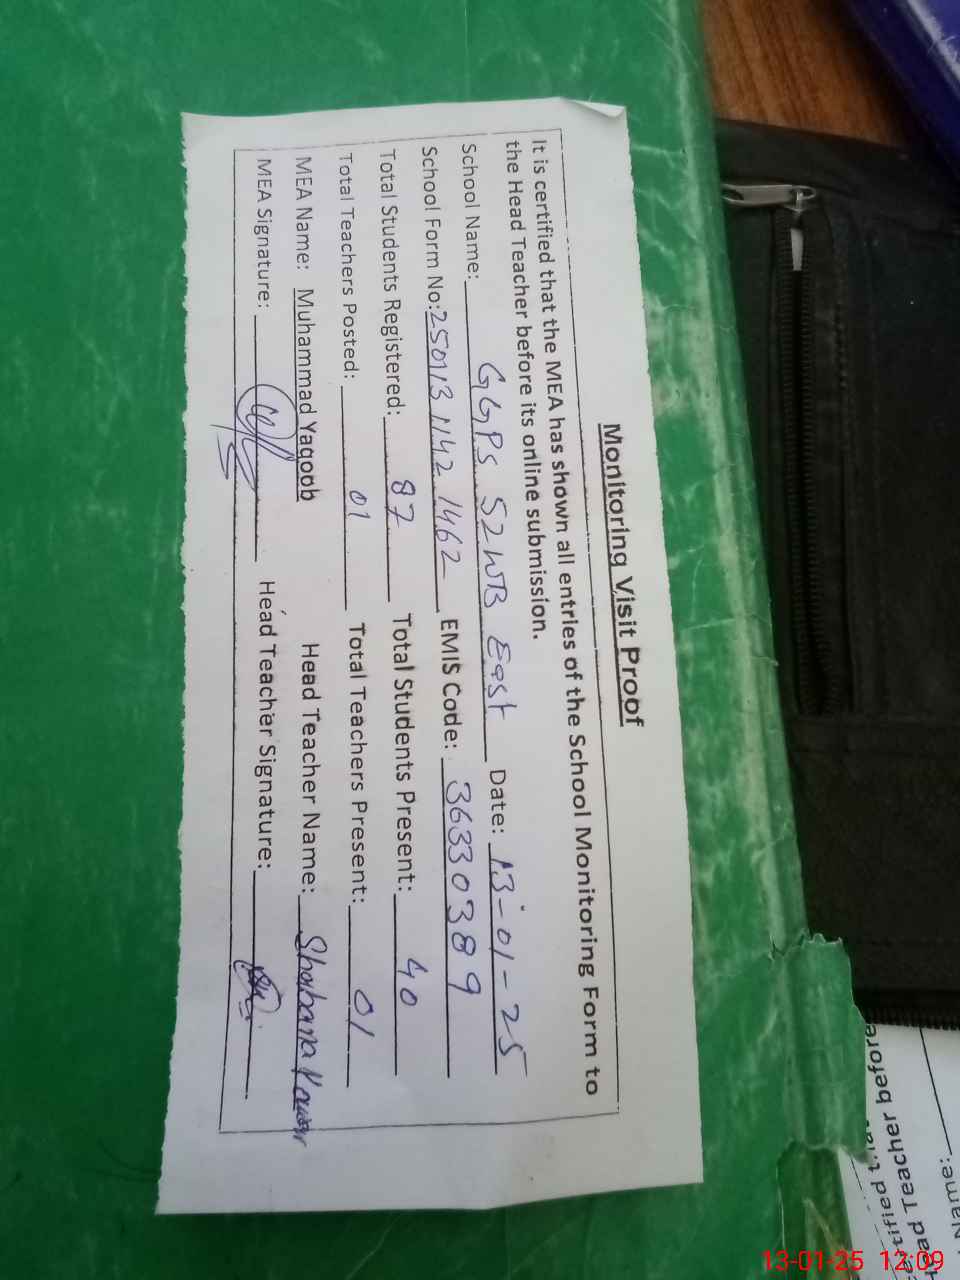 Monitoring Visit Proof
It is certified that the MEA has shown all entries of the School Monitoring Form to
the Head Teacher before its online submission.
School Name: GGPS 52WB East Date: 13-01-25
School Form No: 250113 1142 1462 EMIS Code: 36330389
Total Students Registered: 87 Total Students Present: 40
Total Teachers Posted: 01 Total Teachers Present: 01
MEA Name: Muhammad Yaqoob Head Teacher Name: Shabana Kousar
MEA Signature: Head Teacher Signature:
ad Teacher before
Name:
13-01-25 12:09